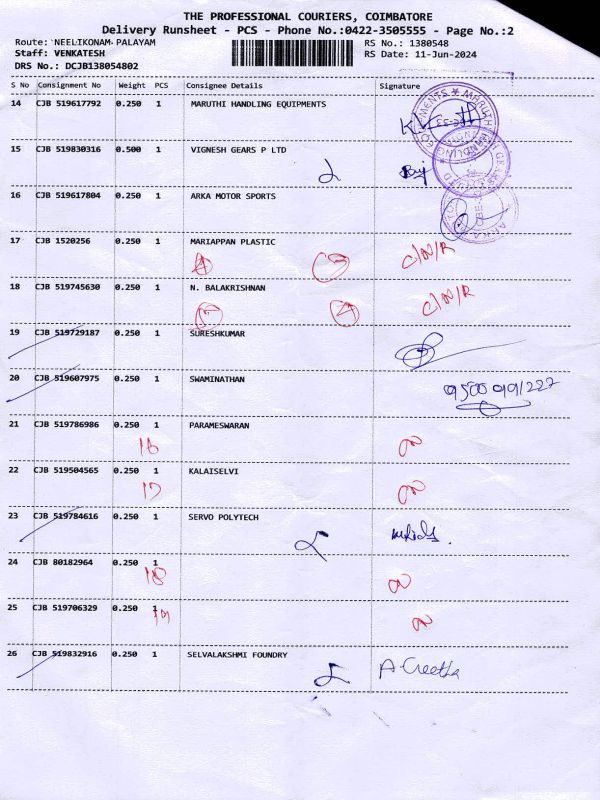 THE PROFESSIONAL COURIERS, COIMBATORE
Delivery Runsheet - PCS - Phone No.:0422-3505555 - Page No.:2
Route: NEELIKONAM PALAYAM
RS No.: 1380548
Staff: VENKATESH
RS Date: 11-Jun-2024
DRS No.: DCJB138054802
S No Consignment No Weight PCS Consignee Details Signature
14 CJB 519617792 0.250 1 MARUTHI HANDLING EQUIPMENTS
15 CJB 519830316 0.500 1 VIGNESH GEARS P LTD
16 CJB 519617804 0.250 1 ARKA MOTOR SPORTS
17 CJB 1520256 0.250 1 MARIAPPAN PLASTIC
C/N/R
18 CJB 519745630 0.250 1 N. BALAKRISHNAN
4 C/N/R
19 CJB 519729187 0.250 1 SURESHKUMAR
20 CJB 519607975 0.250 1 SWAMINATHAN
21 CJB 519786986 0.250 1 PARAMESWARAN
16
22 CJB 519504565 0.250 1 KALAISELVI
17
23 CJB 519784616 0.250 1 SERVO POLYTECH
24 CJB 80182964 0.250 1
18
25 CJB 519706329 0.250 1
19
26 CJB 519832916 0.250 1 SELVALAKSHMI FOUNDRY
A. Creetha